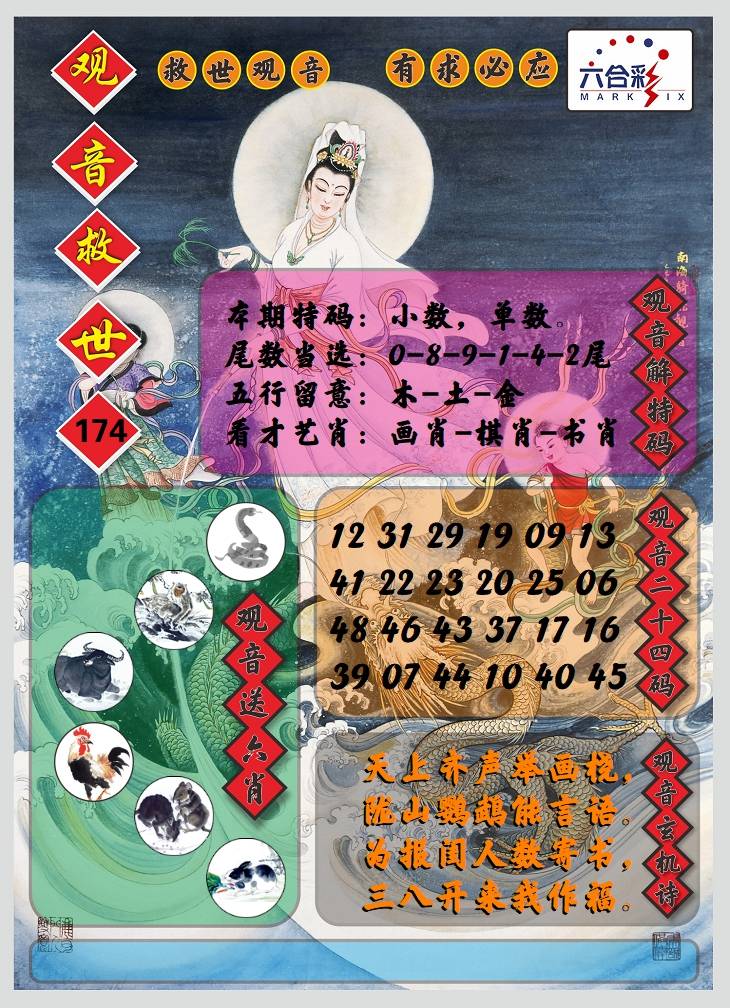 观音救世
174
救世观音 有求必应
六合彩
MARK SIX
观音解特码
本期特码：小数，单数。
尾数当选：0-8-9-1-4-2尾
五行留意：木-土-金
看才艺肖：画肖-棋肖-书肖
观音送六肖
观音二十四码
12 31 29 19 09 13
41 22 23 20 25 06
48 46 43 37 17 16
39 07 44 10 40 45
观音玄机诗
天上齐声举画桡，
陇山鹦鹉能言语。
为报闺人数寄书，
三八开来我作福。